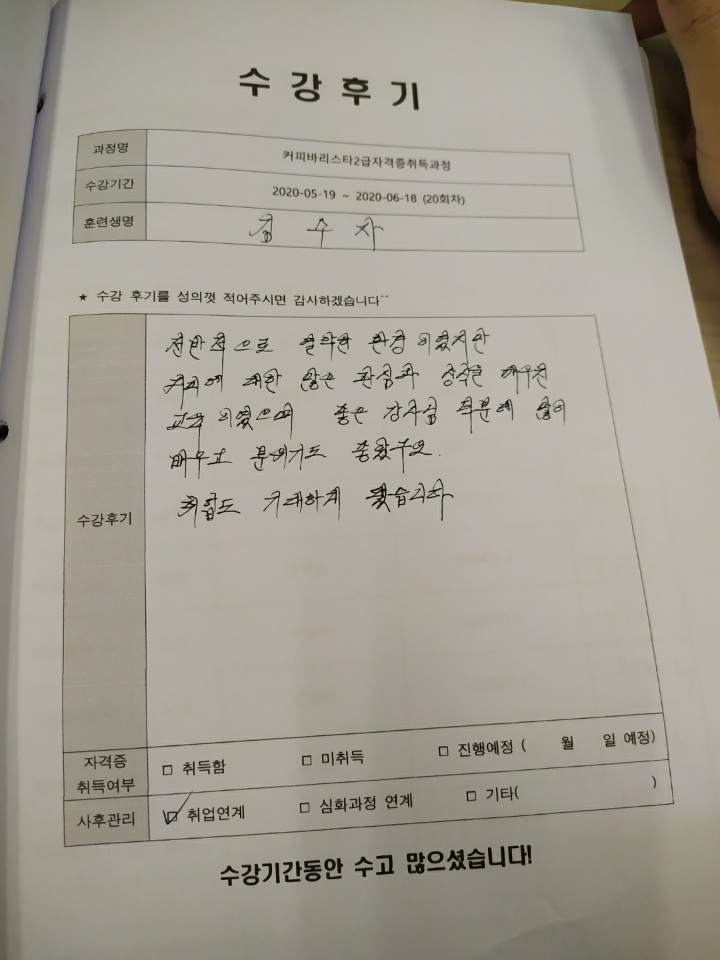 수강후기
과정명 커피바리스타2급자격증취득과정
수강기간 2020-05-19 ~ 2020-06-18 (20회차)
훈련생명 김 수 자
★ 수강 후기를 성의껏 적어주시면 감사하겠습니다^^
수강후기
전반적으로 열악한 환경이었지만
커피에 대한 많은 관심과 상식을 배우는
교육이었으며 좋은 강사님 덕분에 많이
배우고 분위기도 좋았구요.
취업도 기대하게 됐습니다
자격증 취득여부 □ 취득함 □ 미취득 □ 진행예정 ( 월 일 예정)
사후관리 ☑ 취업연계 □ 심화과정 연계 □ 기타( )
수강기간동안 수고 많으셨습니다!